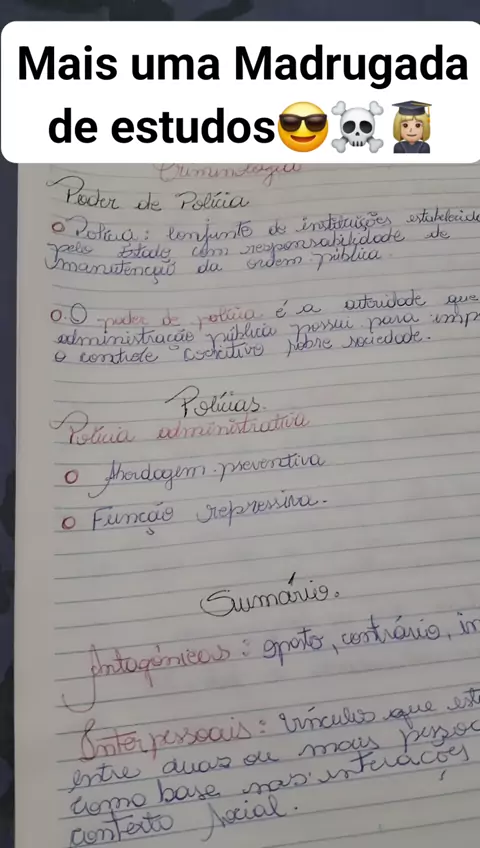 Mais uma Madrugada
de estudos😎☠️👩🏼‍🎓
Criminologia
Poder de Polícia
Polícia: conjunto de instituições estabelecid
pelo Estado com responsabilidade de
manutenção da ordem pública.
O poder de polícia é a autoridade que
administração pública possui para imp
o controle coercitivo sobre sociedade.
Polícias.
Polícia administrativa
Abordagem preventiva
Função repressiva.
Sumário.
Antagônicos: oposto, contrário, in
Interpessoais: vínculo que est
entre duas ou mais pessoa
como base nas interações
contexto social.